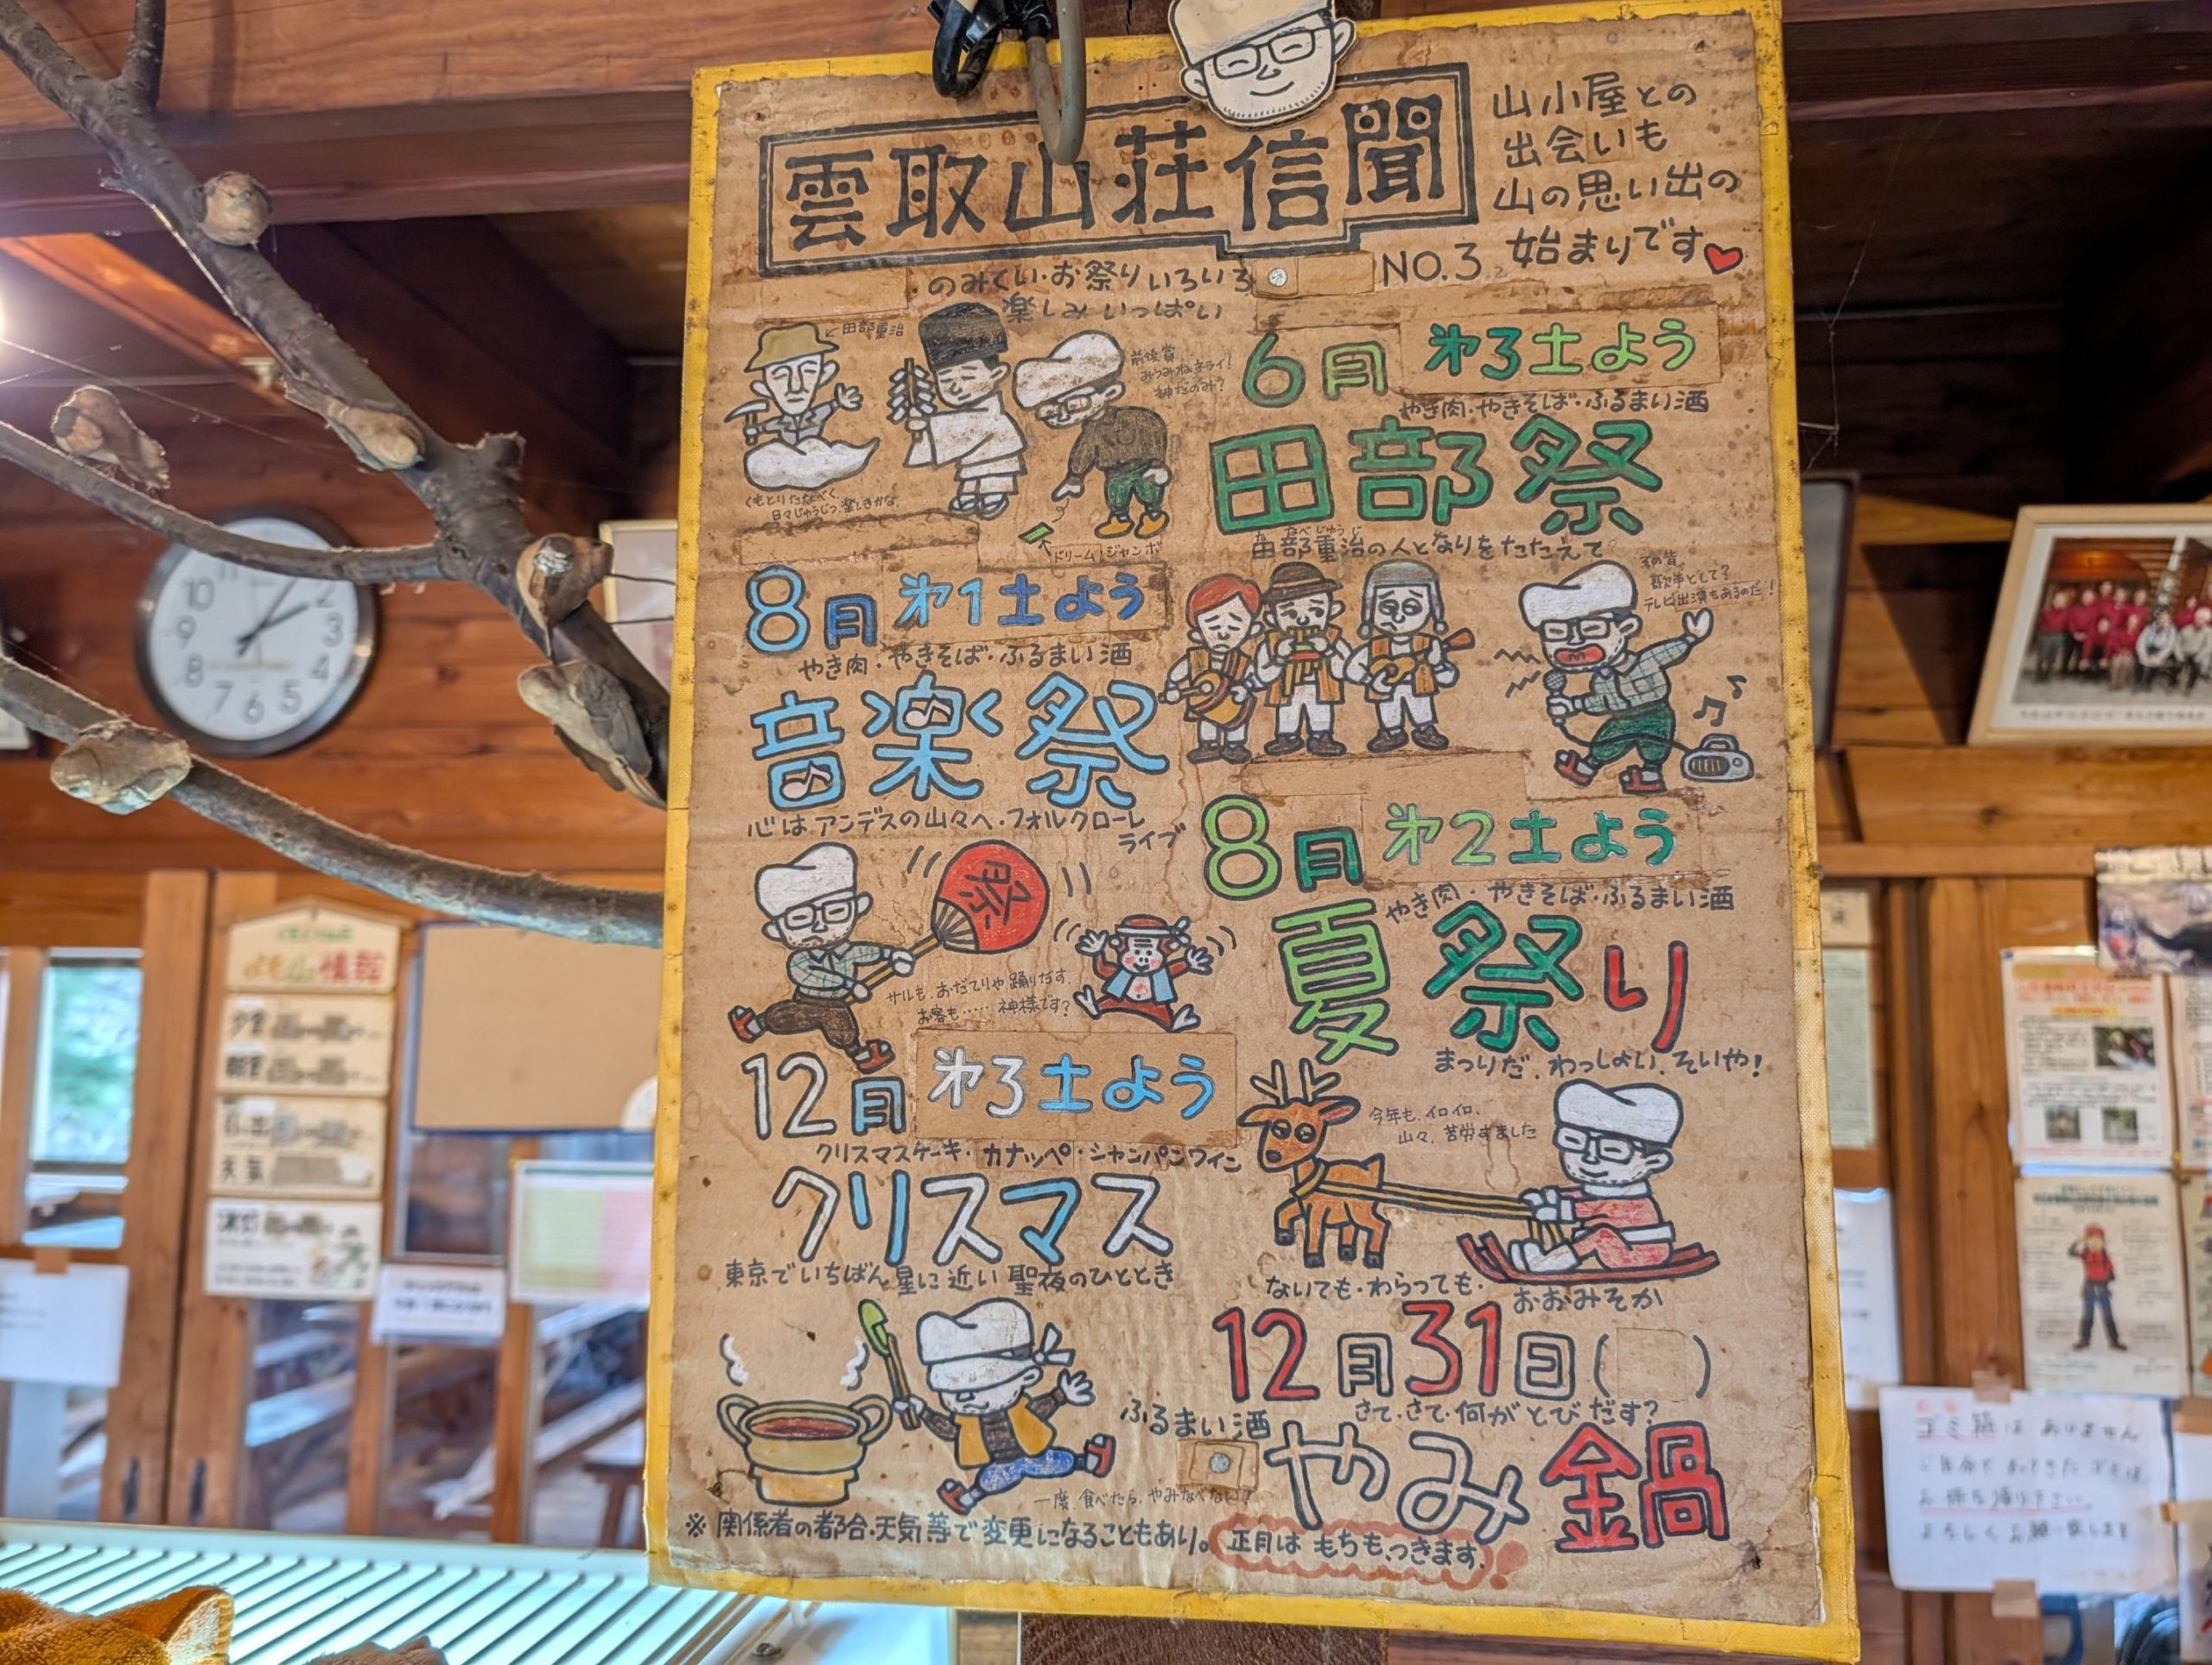 雲取山荘信聞
山小屋との
出会いも
山の思い出の
始まりです
NO.3
のみくい・お祭りいろいろ
楽しみいっぱい
←田部重治
前後賞
みつみねキライ!
神だのみ?
くもとりたなべく
日々じゅうじつ、楽しきかな、
ドリームジャンボ
6月 第3土よう
やき肉・やきそば・ふるまい酒
田部祭
たなべじゅうじ
田部重治の人となりをたたえて
8月 第1土よう
やき肉・やきそば・ふるまい酒
音楽祭
心はアンデスの山々へ・フォルクローレ
ライブ
その昔
歌手として?
テレビ出演もあるのだ!
8月 第2土よう
やき肉・やきそば・ふるまい酒
夏祭り
まつりだ、わっしょい、そいや!
祭
サルも、おだてりゃ踊りだす、
お客も……神様です?
12月 第3土よう
クリスマスケーキ・カナッペ・シャンパンワイン
クリスマス
東京でいちばん星に近い聖夜のひととき
今年も、イロイロ、
山々、苦労すました
ないても・わらっても・
おおみそか
12月31日( )
さて・さて・何がとびだす?
ふるまい酒
やみ鍋
一度、食べたら、やみなべない!
※関係者の都合・天気等で変更になることもあり。
正月は もちも、つきます!
10
11
1
2
3
4
5
6
7
8
9
ゴミ箱はありません